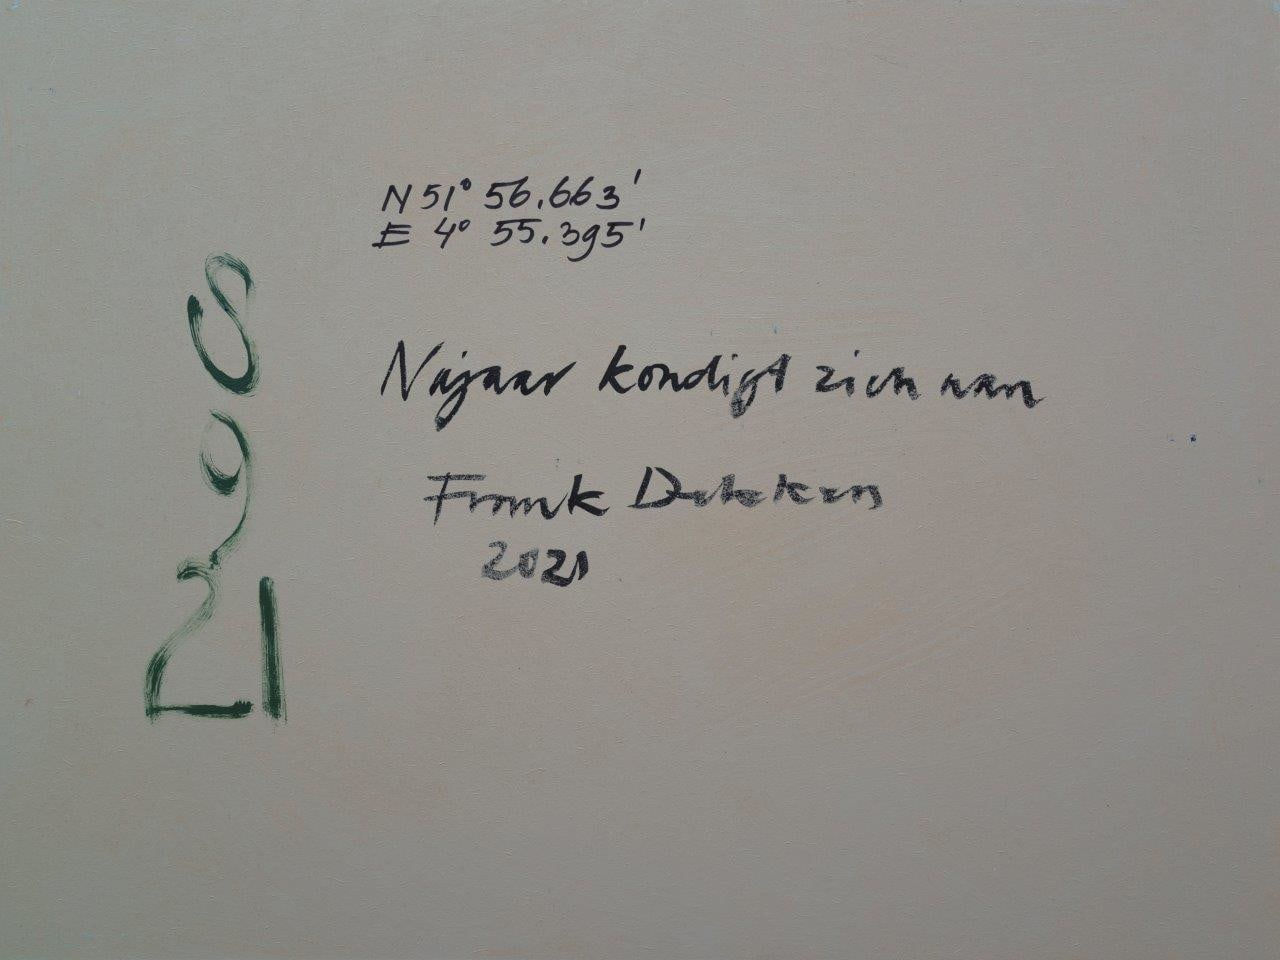 N 51° 56.663'
E 4° 55.395'
Najaar kondigt zich aan
Frank Dekkers
2021